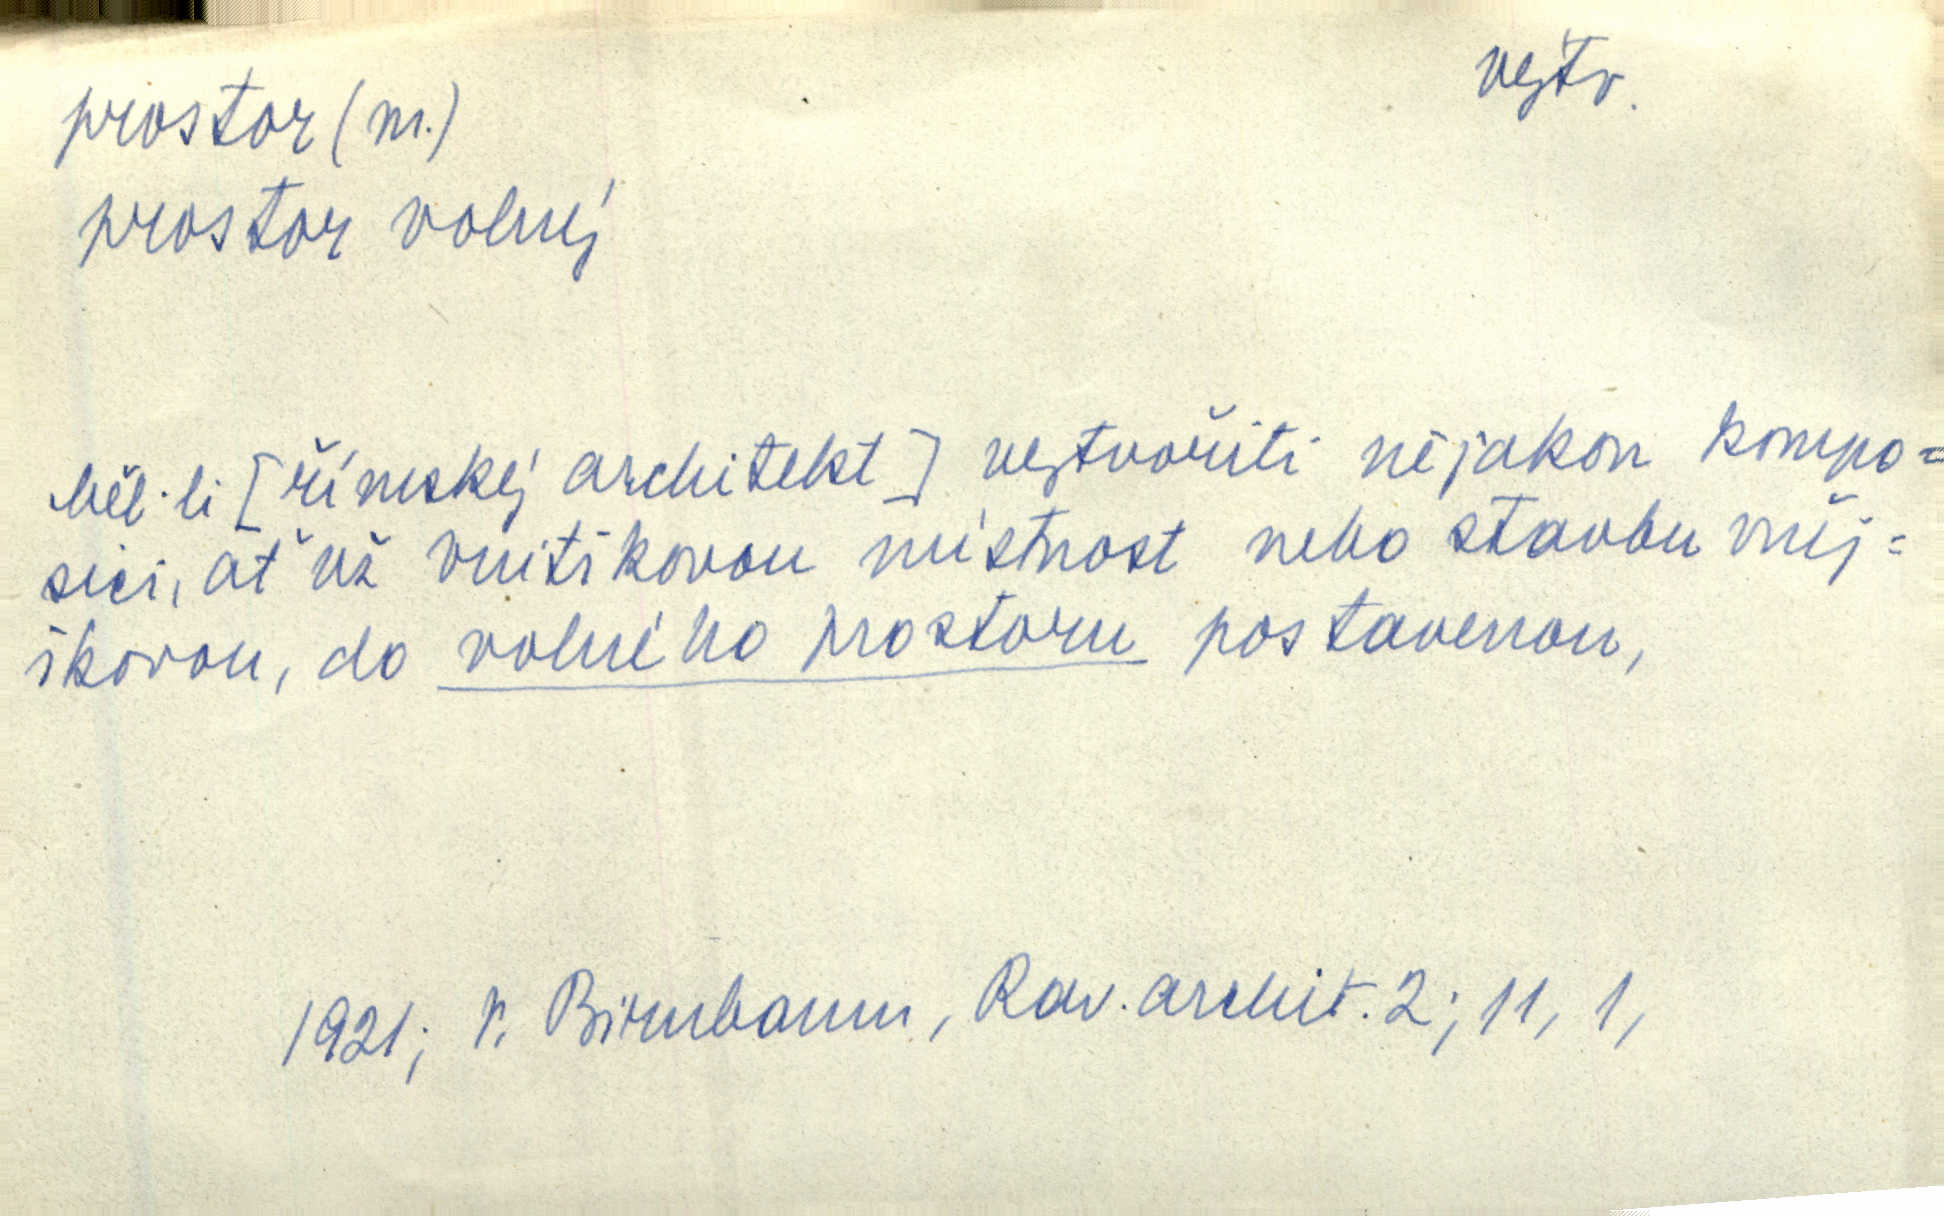 výtv.
prostor (m.)
prostor volný
měl-li [římský architekt] vytvořiti nějakou kompo=
sici, ať už vnitřkovou místnost nebo stavbu vněj=
škovou, do volného prostoru postavenou,
1921; V. Birnbaum, Rav. archit. 2; 11, 1,